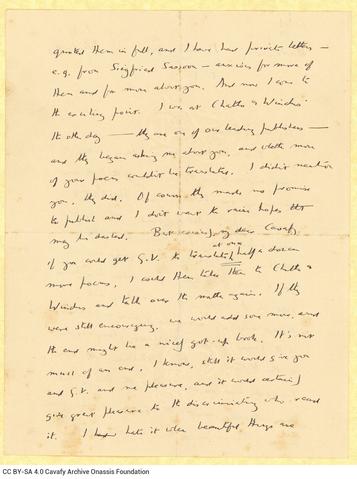 quoted them in full, and I have had private letters —
e.g. from Siegfried Sassoon — anxious for more of
them and for more about you. And now I come to
the exciting point. I was at Chatto & Windus'
the other day — they are one of our leading publishers —
and they began asking me about you, and whether more
of your poems couldn't be translated. I didn't mention
you, they did. Of course they made no promise
to publish and I don't want to raise hopes that
may be dashed. But seriously, my dear Cavafy
if you could get G.V. to translate at once half a dozen
more poems, I could then take them to Chatto &
Windus and talk over the matter again. If they
were still encouraging, we would add some more, and
the end might be a nicely got-up book. It's not
much of an end, I know, still it would give you
and G.V. and me pleasure, and it would certainly
give great pleasure to the discriminating who read
it. I hate it when beautiful things are
CC BY-SA 4.0 Cavafy Archive Onassis Foundation